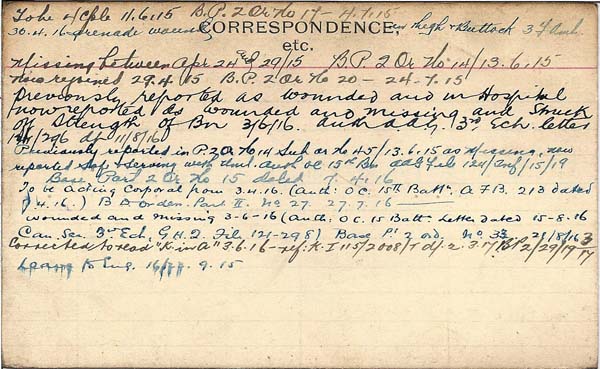 To be a/Cple 11.6.15 B.P. 2 Or No 17 - 4.7.15
30.4.16 Grenade wound thigh & Buttock 3 F Amb.
CORRESPONDENCE,
etc.
Missing between Apr 24 & 29/15 B.P. 2 Or No 14/13.6.15
Now rejoined 29.4.15 B.P. 2 Or No 20 - 24-7.15
Previously reported as wounded and in Hospital
now reported as wounded and missing and Struck
off Strength of Bn 3/6/16. auth. d.a.g. 3rd Ech. letter
121/296 d/d 1/8/16
Previously reported in P. 2 Or No 14 Sub as No 45/13.6.15 as Missing, now
reported Serving with Unit. auth OC 15th Bn
Base Part 2 Or No 15 dated 7.4.16
To be Acting Corporal from 3.4.16. (Auth: O.C. 15th Battn. A.F.B. 213 dated
.4.16.) B orders. Part II. No 27. 27.7.16 -
wounded and missing 3-6-16 (Auth: O.C. 15 Battn. Letter dated 15-8-16
Can. Sec. 3rd Ech. G.H.Q. File 121-298) Base Pt 2 ord. No. 33 21/8/16
Corrected to read "K. in A" 3.6.16 - ref. K.I 115/2008/
9.15